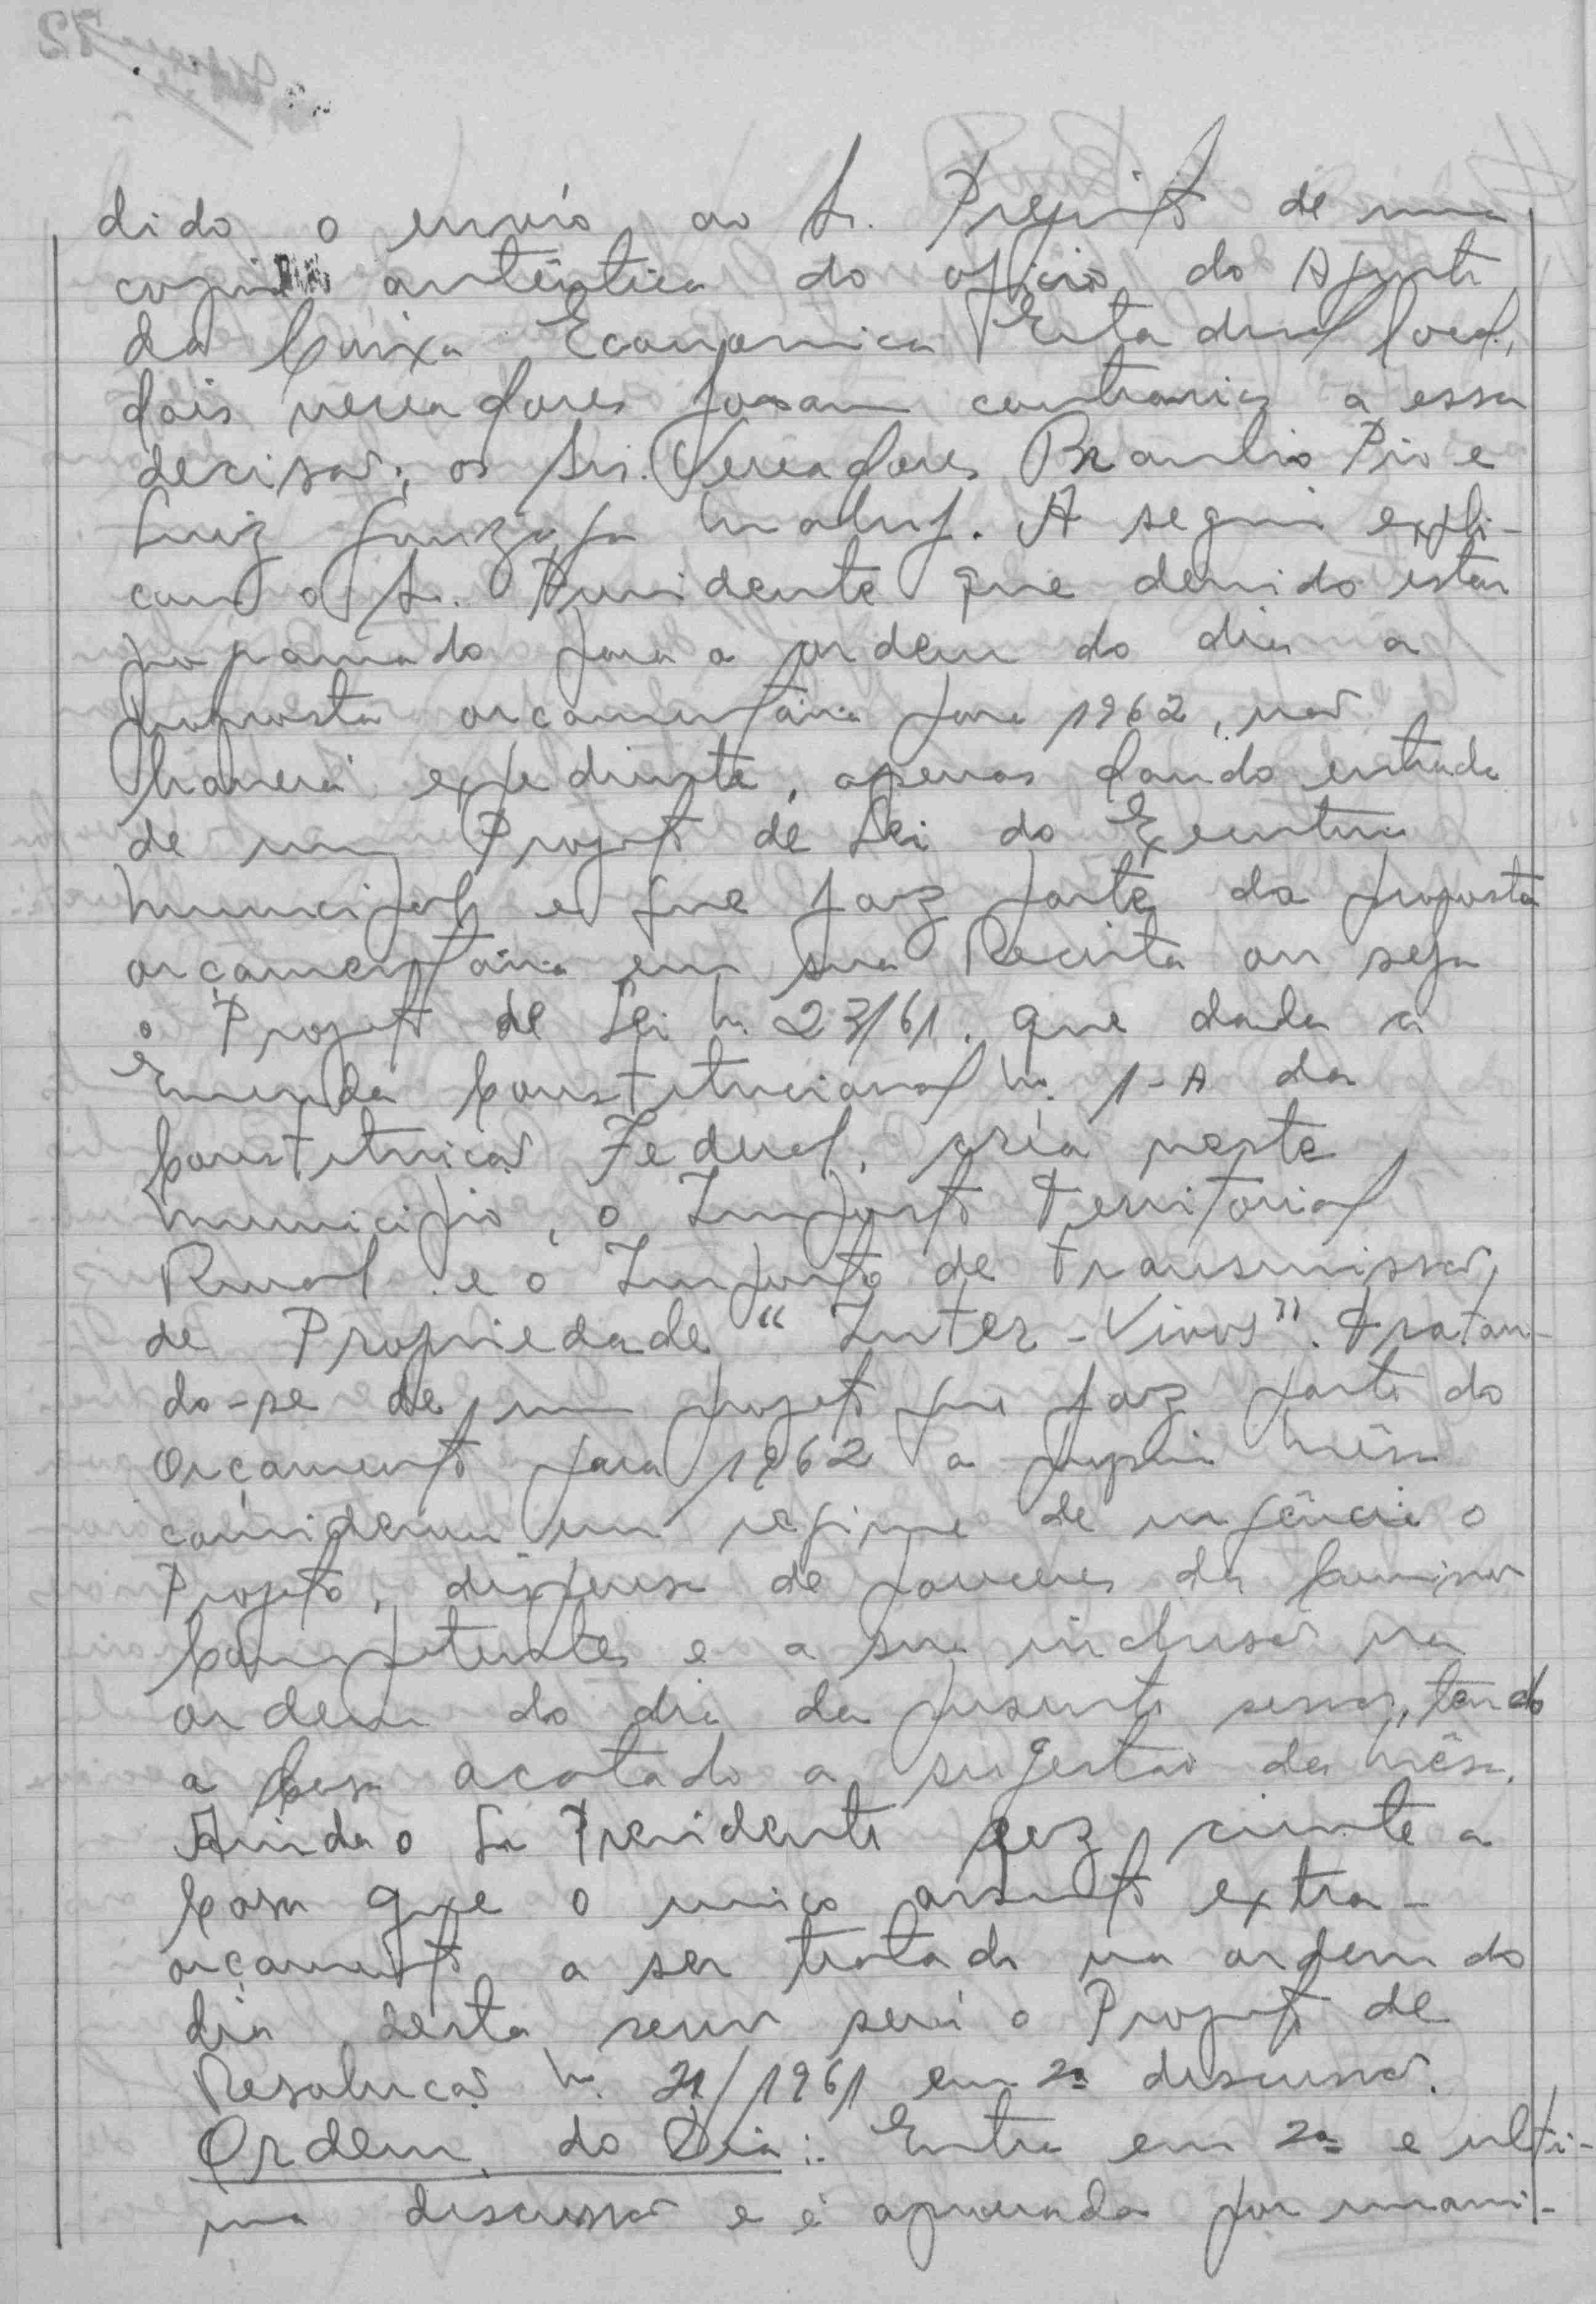 dido o envio ao Sr. Prefeito de uma
copia autêntica do oficio do Agente
da Caixa Economica Estadual local,
dois vereadores foram contrarios a essa
decisão; os Srs. Vereadores Braulio Pio e
Luiz Gonzaga Maluf. A seguir expli-
cou o Sr. Presidente que devido estar
programado para a ordem do dia a
proposta orçamentária para 1962, não
haverá expediente, apenas dando entrada
de um Projeto de Lei do Executivo
Municipal e que faz parte da proposta
orçamentária em sua Receita ou seja
o Projeto de Lei n. 23/61. que dada a
Emenda Constitucional n. 1-A da
Constituição Federal, cria neste
Municipio, o Imposto Territorial
Rural e o Imposto de Transmissão
de Propriedade "Inter-Vivos". Tratan-
do-se de um projeto que faz parte do
Orçamento para 1962 a propria Mêsa
considerou em regime de urgência o
Projeto, dispensa de parecer da Comissão
Competente e a sua inclusão na
ordem do dia da presente sessão, tendo
a Casa acatado a sugestão da Mêsa.
Ainda o Sr Presidente fez ciente a
Casa que o unico assunto extra-
orçamento a ser tratado na ordem do
dia desta sessão será o Projeto de
Resolução n. 21/1961 em 2ª discussão.
Ordem do Dia:- Entra em 2ª e ulti-
ma discussão e é aprovada por unani-